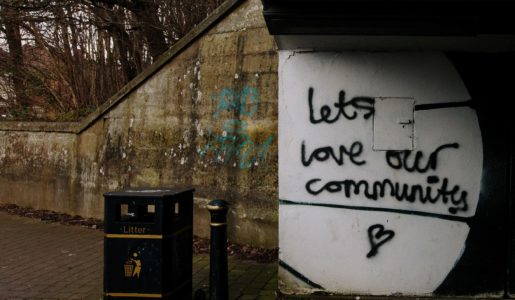 Lets
Love our
community
Litter